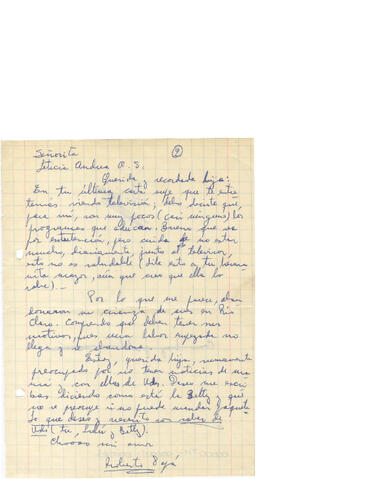 Señorita
Leticia Andrea R. S.
9
Querida y recordada hija:
En tu última carta supe que te entre
tenías viendo televisión; debo decirte que,
para mí, son muy pocos (casi ninguno) los
programas que educan. Bueno que sea
por entretención, pero cuida de no estar
mucho, diariamente, junto al televisor,
esto no es saludable (dile esto a tu herma
nita mayor, aún que creo que ella lo
sabe).-
Por lo que me parece, aban
donaron su crianza de aves en Río
Claro. Comprendo que deben tener sus
motivos, pues una labor empezada no
llega y se abandona.
Estoy, querida hija, nuevamente
preocupado por no tener noticias de
mamá y con ellas de Uds. Deseo me escri
bas diciendo como está la Betty y que
no se preocupe si no puede mandar paquete
lo que deseo y necesito son saber de
Uds (tu, y Betty).
Chaoooo mi amor
Roberto Papá